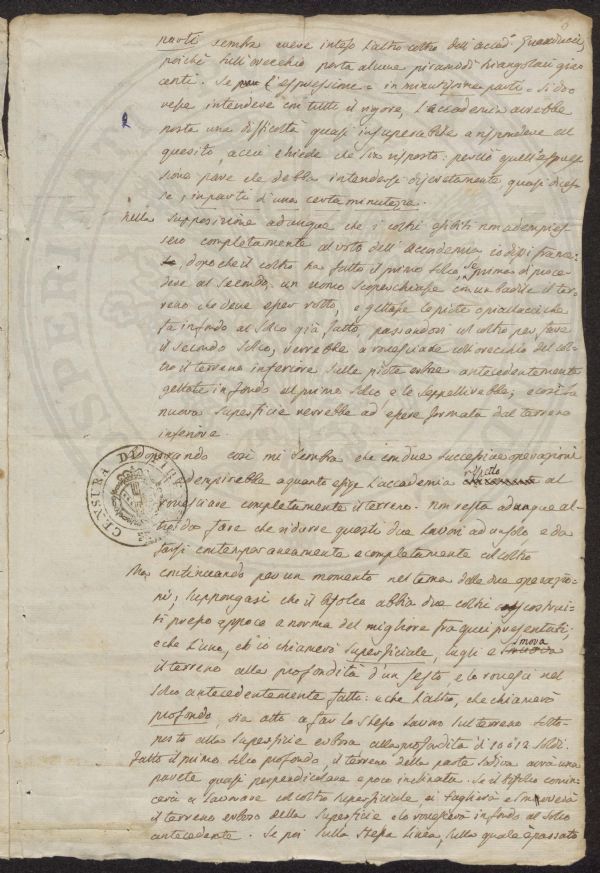 parti sembra avere inteso l'altro coltro dell'accad.º Guarducci,
poichè sull'orecchio porta alcune piramidi triangolari gia
centi. Se l'espressione = in minutissime parti = si do
vesse intendere con tutto il rigore, l'accademia avrebbe
posta una difficoltà quasi insuperabile a rispondere al
quesito, a cui chiede che sia risposto: perciò quell'espres
sione pare che debba intendersi discretamente quasi dices
se, in parti d'una certa minutezza.
Nella supposizione adunque che i coltri esibiti non adempies
sero completamente al voto dell'Accademia io dissi fran
, dopo che il coltro ha fatto il primo solco, se prima di proce
dere al secondo, un uomo scoperchiasse con un badile il ter
reno che deve esser rotto, e gettasse le piote o pallocciche
fa in fondo al solco già fatto, passandovi il coltro per fare
il secondo solco, verrebbe a rovesciare coll'orecchio del col
tro il terreno inferiore sulle piote erbose antecedentemente
gettate in fondo al primo solco e le seppellirebbe; e così la
nuova superficie verrebbe ad essere formata dal terreno
inferiore.
Operando così mi sembra che con due successive operazioni
adempirebbe a quanto esige l'accademia rispetto al
rovesciare completamente il terreno. Non resta adunque al-
tro da fare che ridurre questi due lavori ad un solo e da
farsi contemporaneamente e completamente col coltro
Ma continuando per un momento nel tema delle due operazio-
ni; suppongasi che il bifolco abbia due coltri costrui-
ti presso appoco a norma del migliore fra quei presentati;
e che l'uno, ch'io chiamerò superficiale, tagli e smova
il terreno alla profondità d'un sesto, e lo rovesci nel
solco antecedentemente fatto: e che l'altro, che chiamerò
profondo, sia atto a far lo stesso lavoro sul terreno sotto
posto alla superficie erbosa alla profondità di 10 o 12 soldi.
Fatto il primo solco profondo, il terreno della parte soda avrà una
parete quasi perpendicolare e poco inclinata. Se il bifolco comin
cerà a lavorare col coltro superficiale ei taglierà e smoverà
il terreno erboso della superficie e lo rovescerà in fondo al solco
antecedente. Se poi sulla stessa linea, sulla quale è passato
CENSURA DI